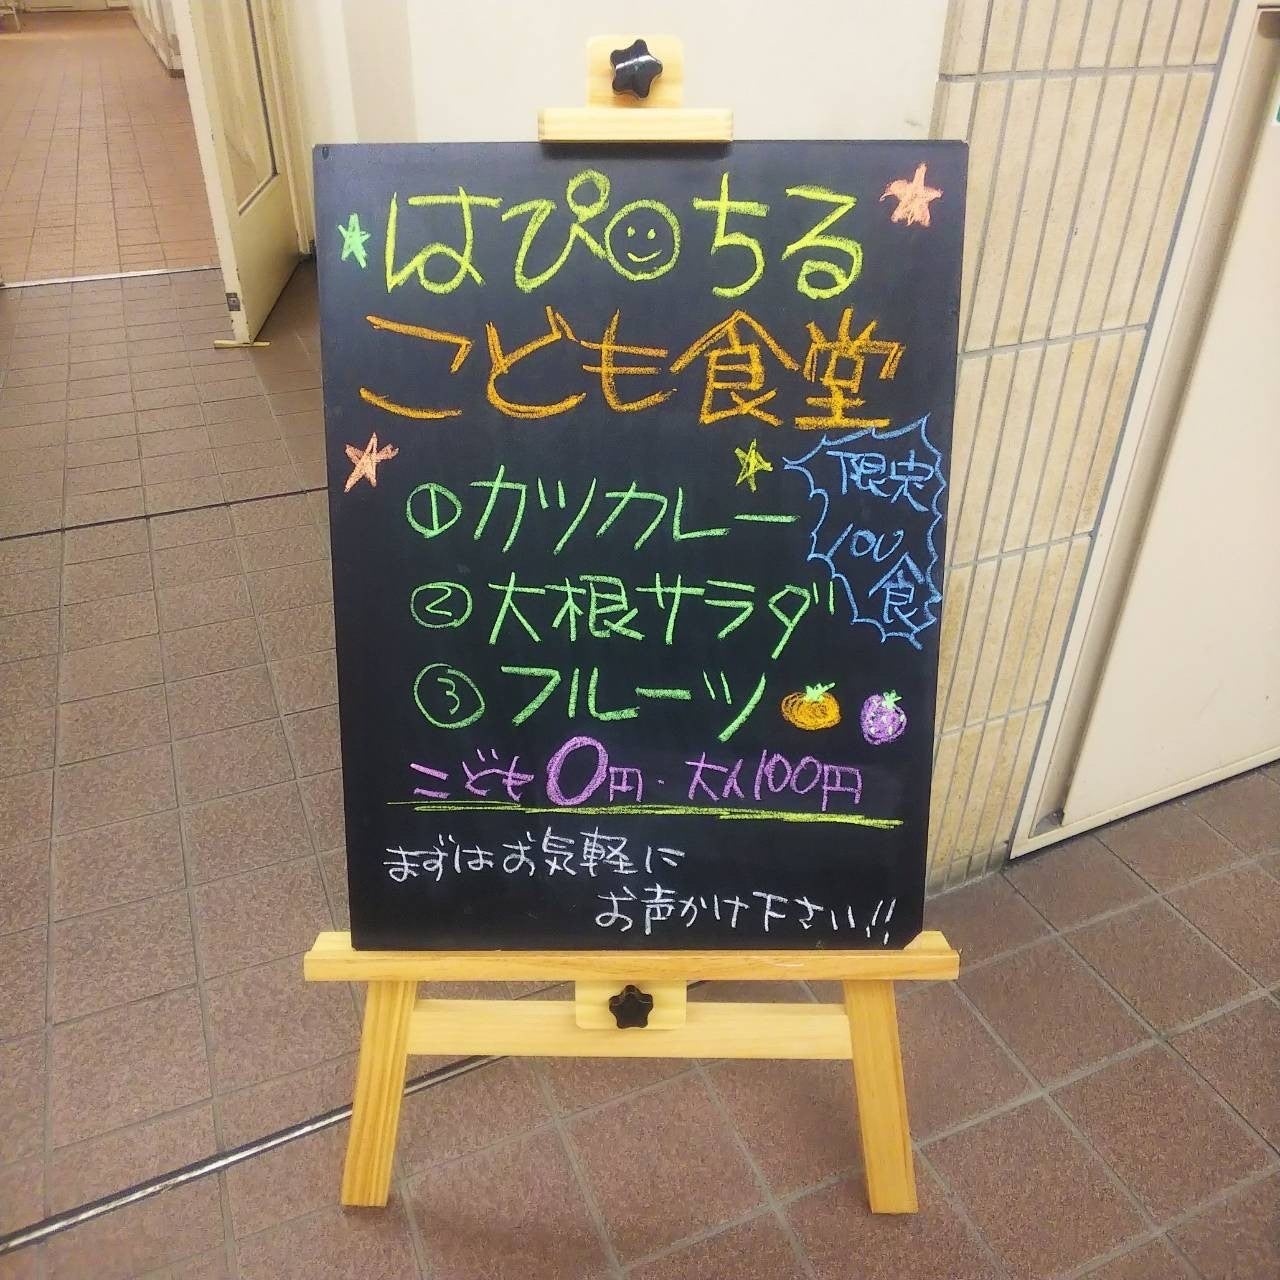 はぴ☺ちる
こども食堂
限定
100
食
①カツカレー
②大根サラダ
③フルーツ
こども0円・大人100円
まずはお気軽に
お声かけ下さい!!